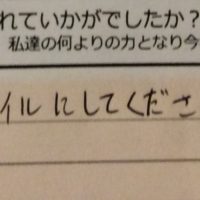 れていかがでしたか?
私達の何よりの力となり今
イルにしてくださ